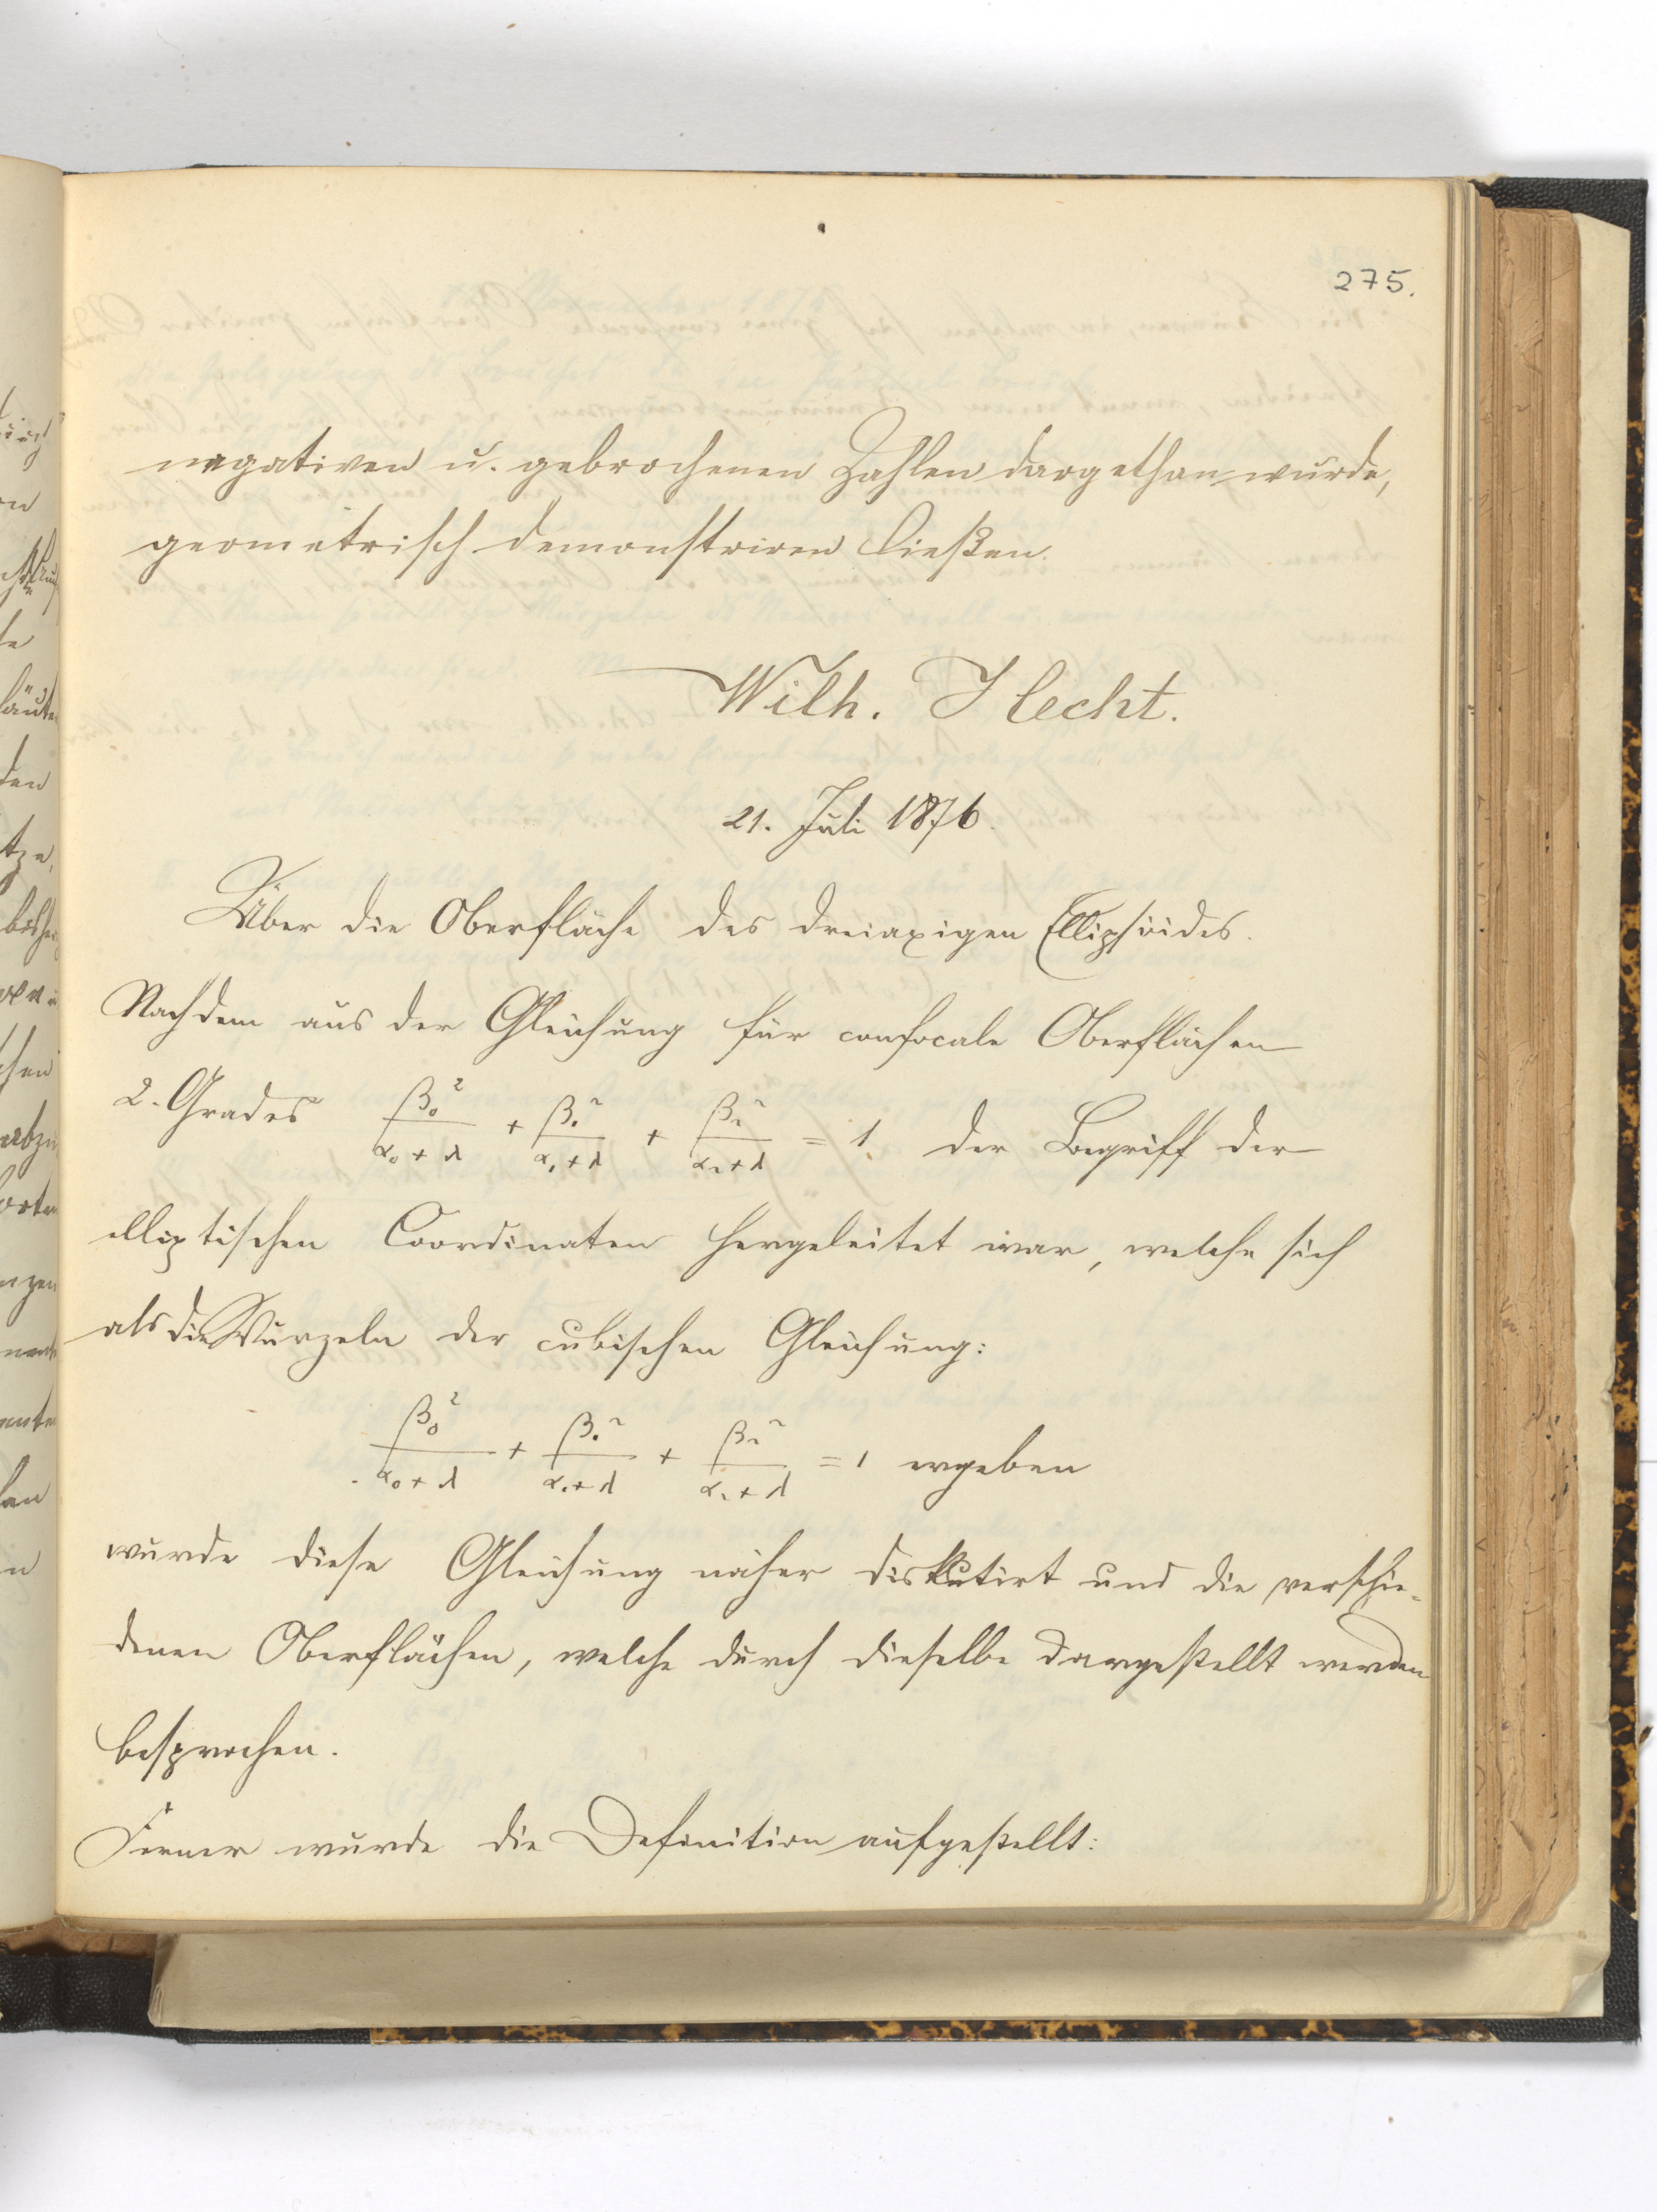 275.
negativen u. gebrochenen Zahlen dargethan wurde,
geometrisch demonstriren ließen.
Wilh. Hecht.
21. Juli 1876.
Über die Oberfläche des dreiaxigen Ellipsoides.
Nachdem aus der Gleichung für confocale Oberflächen
2. Grades β₀²/(α₀ + λ) + β₁²/(α₁ + λ) + β₂²/(α₂ + λ) = 1 der Begriff der
elliptischen Coordinaten hergeleitet war, welche sich
als die Wurzeln der cubischen Gleichung:
β₀²/(α₀ + λ) + β₁²/(α₁ + λ) + β₂²/(α₂ + λ) = 1 ergeben
wurde diese Gleichung näher diskutirt und die verschie-
denen Oberflächen, welche durch dieselbe dargestellt werden
besprochen.
Ferner wurde die Definition aufgestellt: